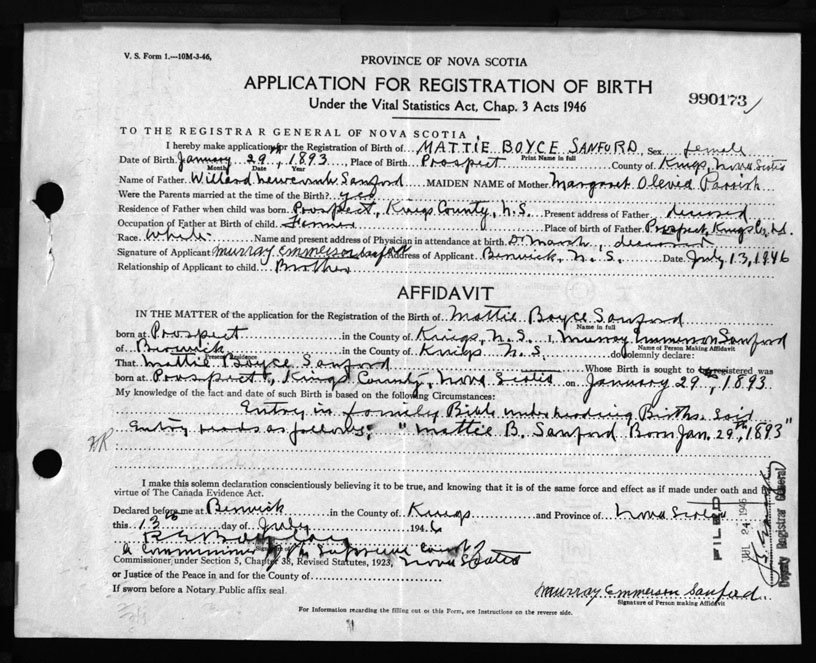 V. S. Form 1.—10M-3-46,
PROVINCE OF NOVA SCOTIA
APPLICATION FOR REGISTRATION OF BIRTH
Under the Vital Statistics Act, Chap. 3 Acts 1946
990173
TO THE REGISTRAR GENERAL OF NOVA SCOTIA
I hereby make application for the Registration of Birth of MATTIE BOYCE SANFORD, Sex female
Print Name in full
Date of Birth January 29th, 1893 Place of Birth Prospect County of Kings, Nova Scotia
Month Date Year
Name of Father Willard Sanford MAIDEN NAME of Mother Margaret Parrish
Were the Parents married at the time of the Birth? yes
Residence of Father when child was born Prospect, Kings County, N.S. Present address of Father deceased
Occupation of Father at Birth of child Farmer Place of birth of Father Prospect, Kings Co. N.S.
Race White Name and present address of Physician in attendance at birth Dr Marsh, deceased
Signature of Applicant Murray Emmerson Sanford Address of Applicant Berwick, N. S. Date July 13, 1946
Relationship of Applicant to child Brother
AFFIDAVIT
IN THE MATTER of the application for the Registration of the Birth of Mattie Boyce Sanford
Name in full
born at Prospect in the County of Kings, N.S. I, Murray Emmerson Sanford
Name of Person Making Affidavit
of Berwick in the County of Kings N.S. do solemnly declare:
Present Residence
That Mattie Boyce Sanford Whose Birth is sought to be registered was
born at Prospect, Kings County, Nova Scotia on January 29, 1893
My knowledge of the fact and date of such Birth is based on the following Circumstances:
Entry in family Bible under heading Births. Said
Entry reads as follows: "Mattie B. Sanford Born Jan. 29th, 1893"
I make this solemn declaration conscientiously believing it to be true, and knowing that it is of the same force and effect as if made under oath and by
virtue of The Canada Evidence Act.
Declared before me at Berwick in the County of Kings and Province of Nova Scotia
this 13th day of July 1946
A Commissioner of the Supreme Court of
Commissioner, under Section 5, Chapter 38, Revised Statutes, 1923, Nova Scotia
or Justice of the Peace in and for the County of
If sworn before a Notary Public affix seal
Murray Emmerson Sanford
Signature of Person making Affidavit
For Information regarding the filling out of this Form, see Instructions on the reverse side.
FILED
JUL 24 1946
Deputy Registrar General